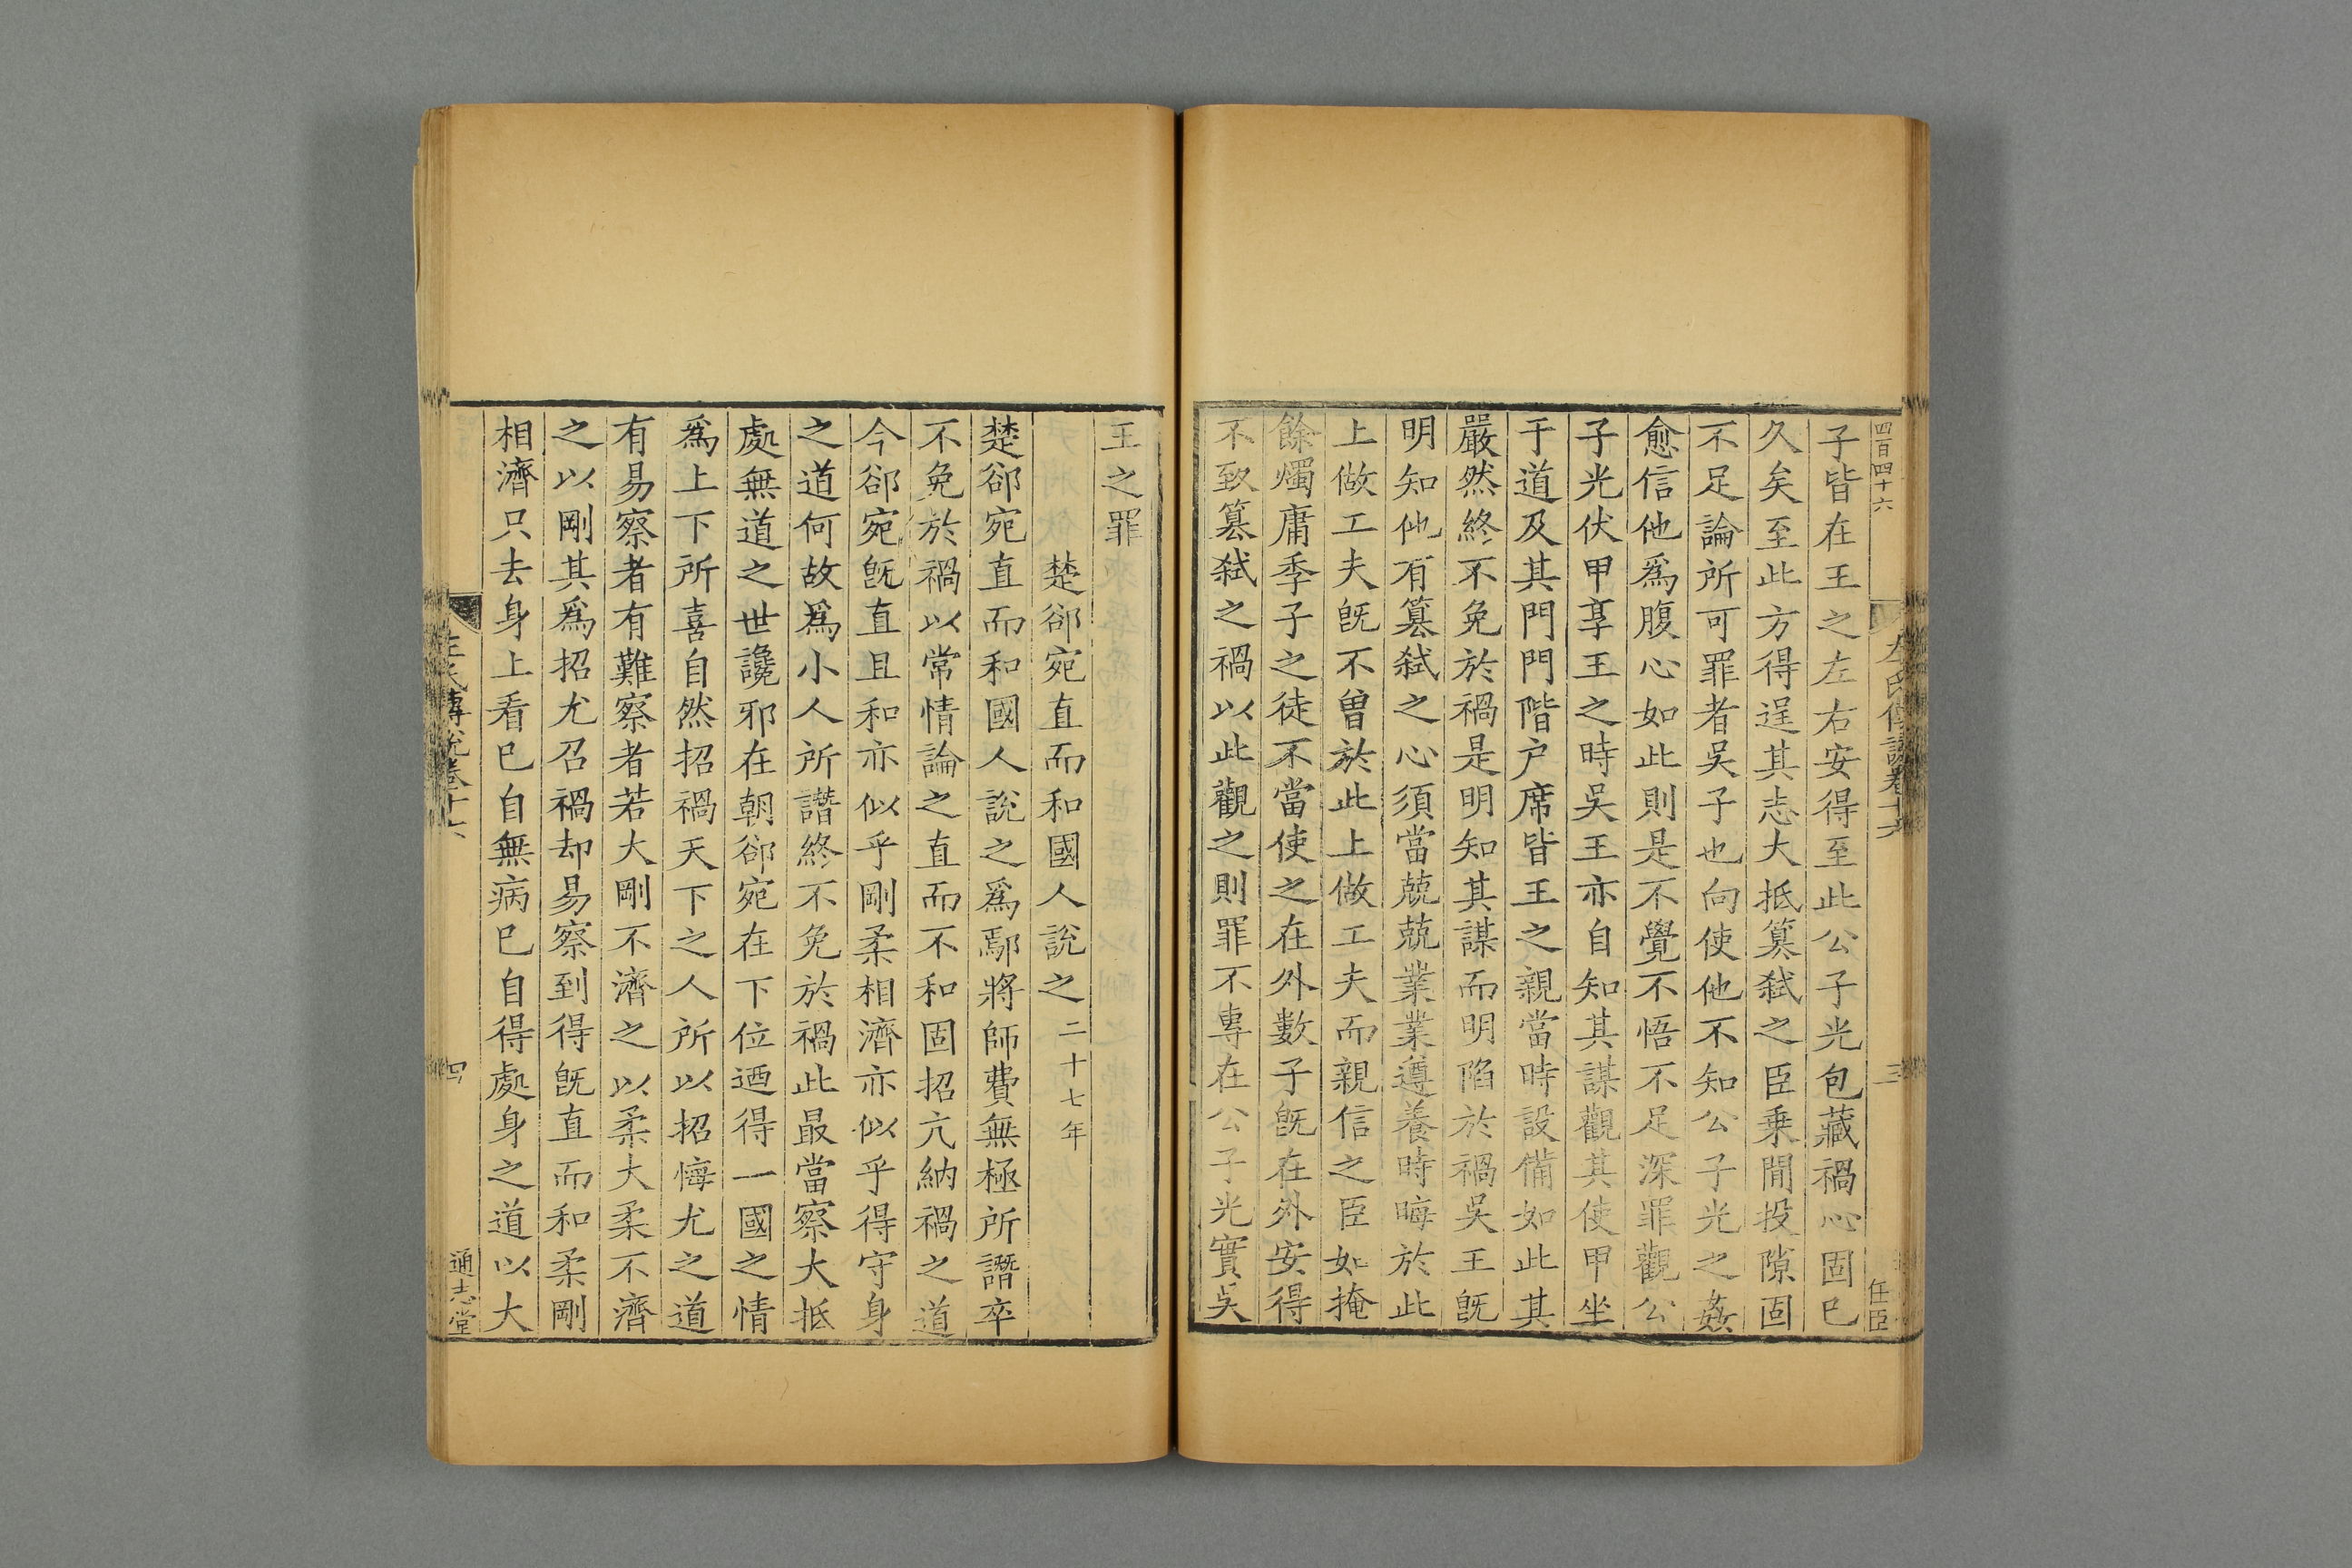 四百四十六
左氏傳說卷十六
三
任臣
子皆在王之左右安得至此公子光包藏禍心固已
久矣至此方得逞其志大抵篡弑之臣乗間投隙固
不足論所可罪者吳子也向使他不知公子光之姦
愈信他爲腹心如此則是不覺不悟不足深罪觀公
子光伏甲享王之時吳王亦自知其謀觀其使甲坐
于道及其門門階户席皆王之親當時設備如此其
嚴然終不免於禍是明知其謀而明陷於禍吳王旣
明知他有篡弑之心須當兢兢業業遵養時晦於此
上做工夫旣不曾於此上做工夫而親信之臣如掩
餘燭庸季子之徒不當使之在外數子旣在外安得
不致篡弑之禍以此觀之則罪不專在公子光實吳
王之罪
楚郤宛直而和國人說之二十七年
楚郤宛直而和國人說之爲鄢將師費無極所譖卒
不免於禍以常情論之直而不和固招亢納禍之道
今郤宛旣直且和亦似乎剛柔相濟亦似乎得守身
之道何故爲小人所譖終不免於禍此最當察大抵
處無道之世讒邪在朝郤宛在下位迺得一國之情
爲上下所喜自然招禍天下之人所以招悔尤之道
有易察者有難察者若大剛不濟之以柔大柔不濟
之以剛其爲招尤召禍却易察到得旣直而和柔剛
相濟只去身上看已自無病已自得處身之道以大
左氏傳說卷十六
四
通志堂